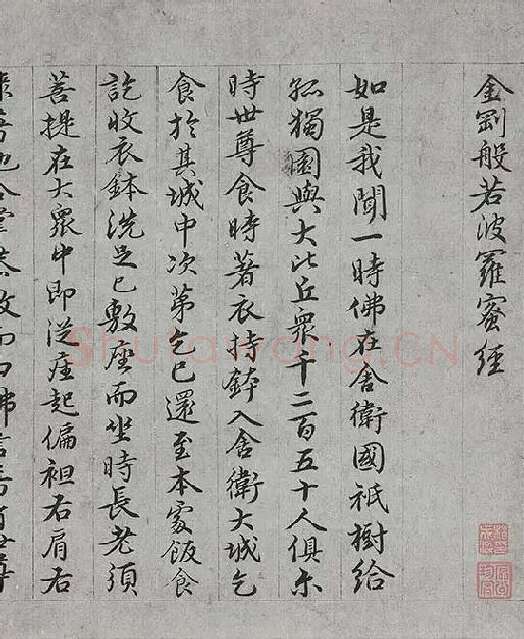 金剛般若波羅蜜經
如是我聞一時佛在舍衛國祇樹給
孤獨園與大比丘衆千二百五十人俱尒
時世尊食時著衣持鉢入舍衛大城乞
食於其城中次第乞已還至本處飯食
訖收衣鉢洗足已敷座而坐時長老須
菩提在大衆中即從座起偏袒右肩右
合掌恭敬而白佛言希有世尊
Shufawang.CN